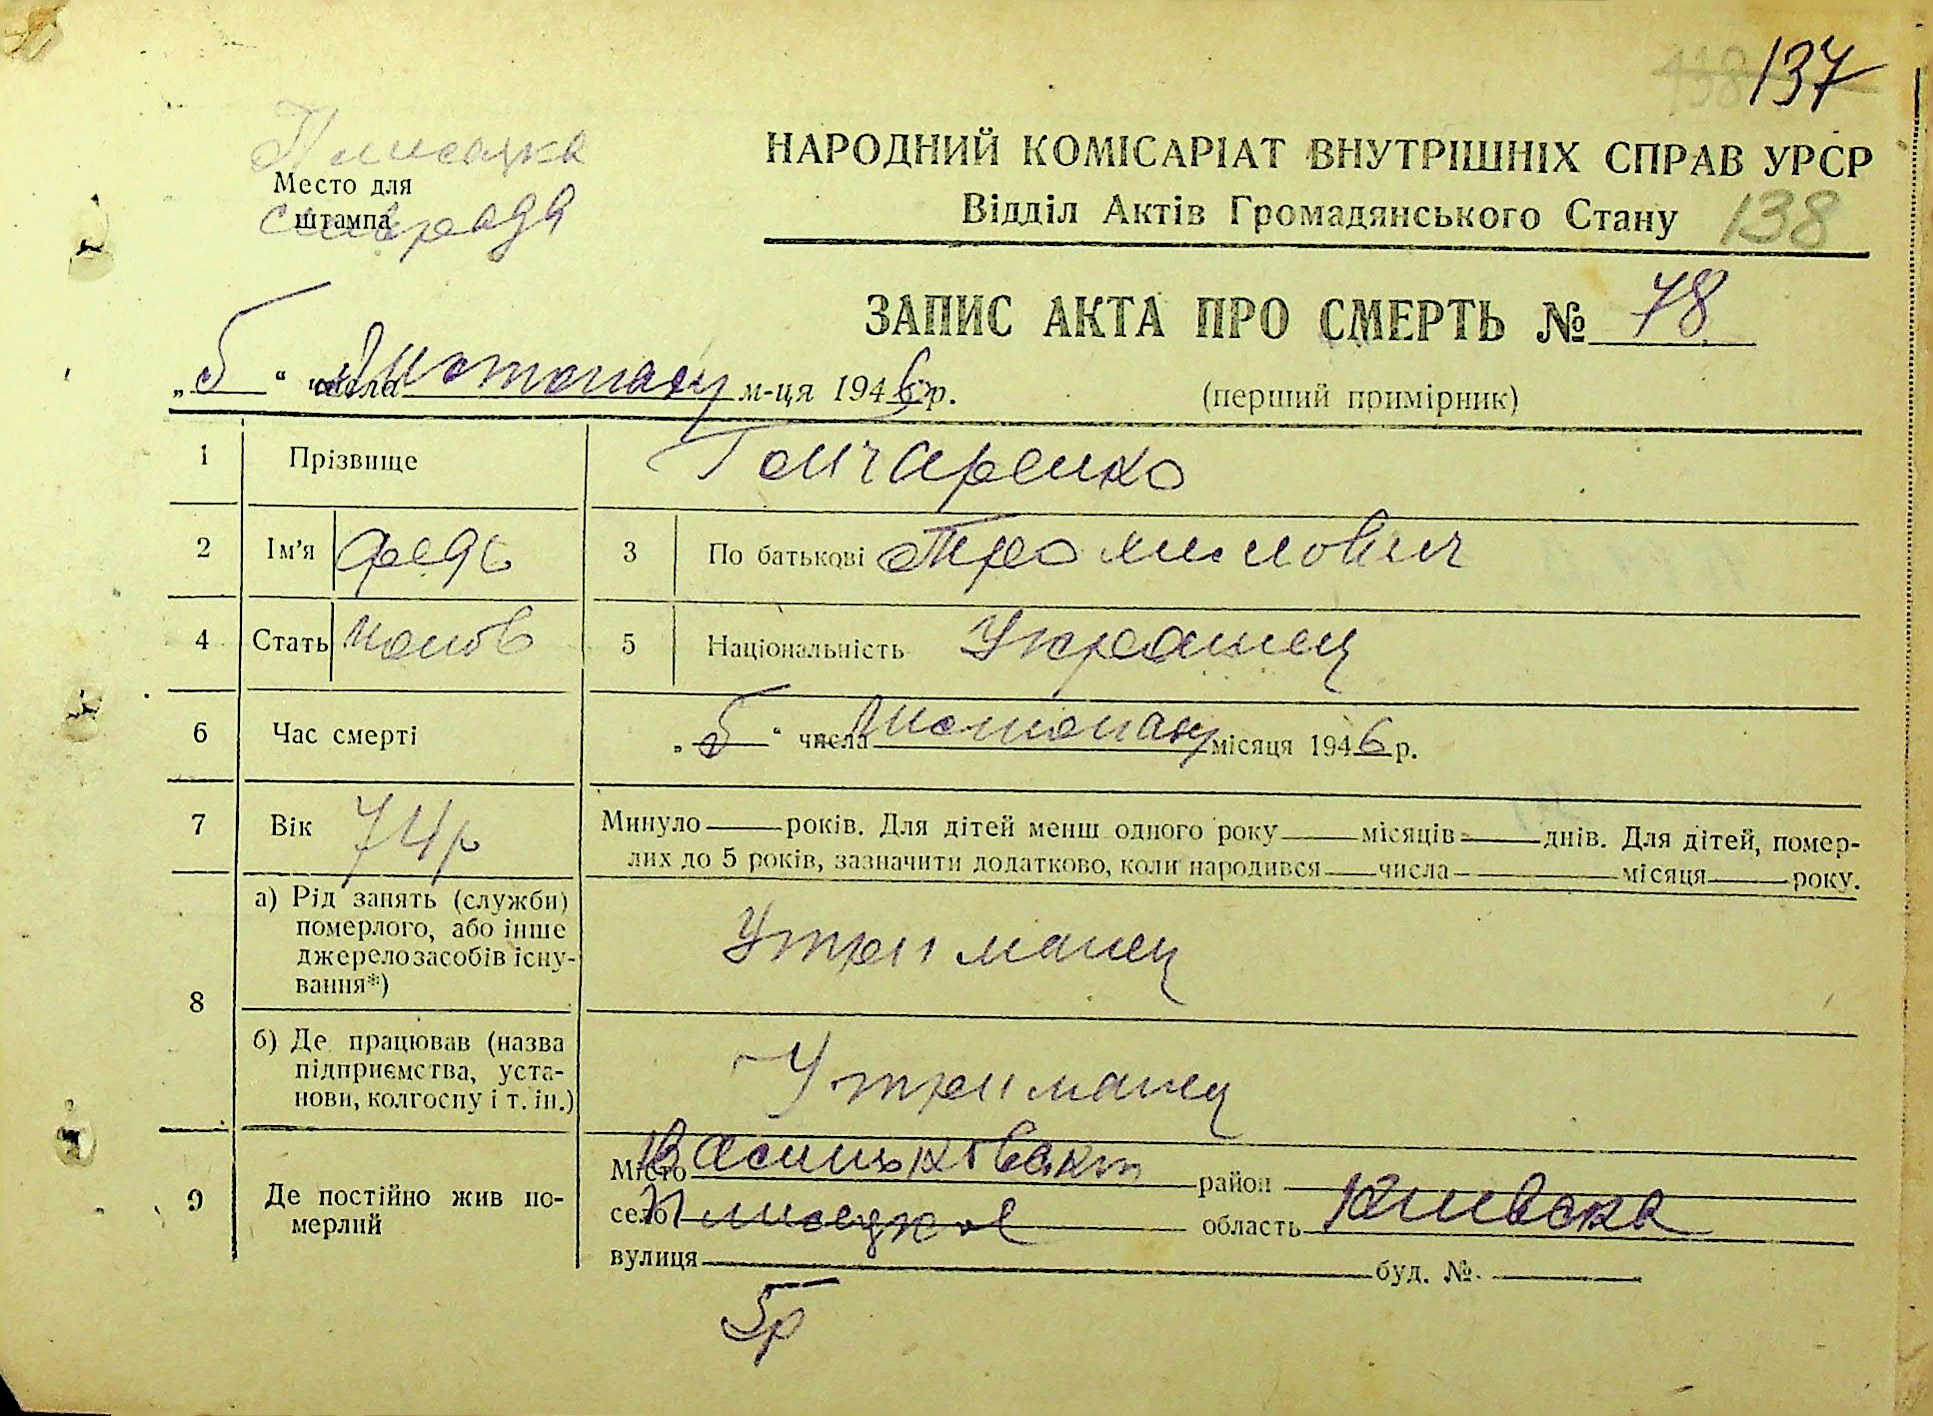 137
138
Плисецка
Место для
штампа
сільрада
НАРОДНИЙ КОМІСАРІАТ ВНУТРІШНІХ СПРАВ УРСР
Відділ Актів Громадянського Стану 138
ЗАПИС АКТА ПРО СМЕРТЬ № 78
„5“ числа Листопаду м-ця 1946 р.
(перший примірник)
1 Прізвище Гончаренко
2 Ім'я Федь 3 По батькові
4 Стать 5 Національність Украинец
6 Час смерті „5“ числа Листопаду місяця 1946 р.
7 Вік 74р Минуло років. Для дітей менш одного року місяців днів. Для дітей, помер-
лих до 5 років, зазначити додатково, коли народився числа місяця року.
8 а) Рід занять (служби)
померлого, або інше
джерело засобів існу-
вання*)
Утриманец
б) Де працював (назва
підприємства, уста-
нови, колгоспу і т. ін.)
Утриманец
9 Де постійно жив по-
мерлий
Місто район
село Плисецкое область Киивска
вулиця буд. №
5р